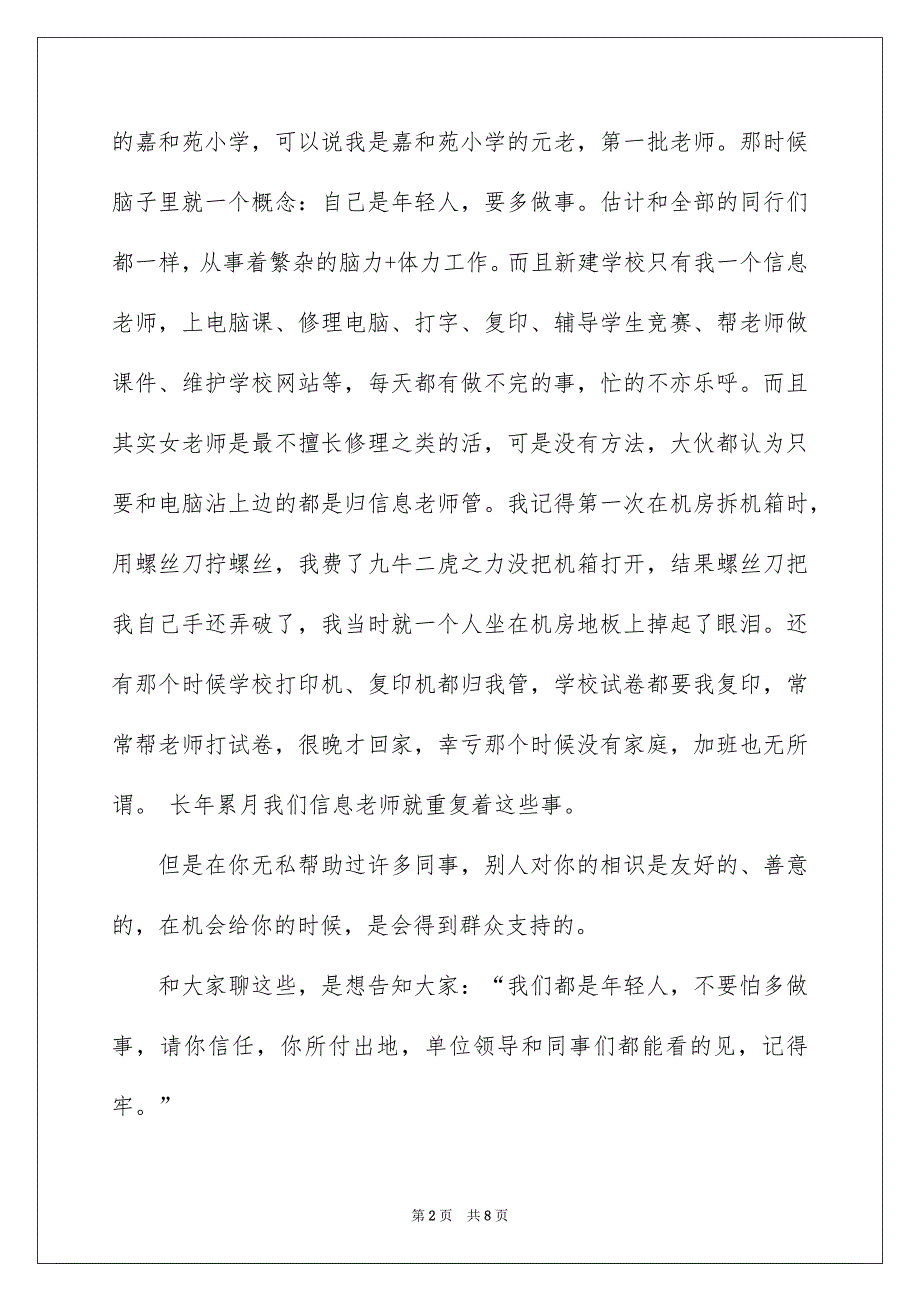 的嘉和苑小学，可以说我是嘉和苑小学的元老，第一批老师。那时候
脑子里就一个概念：自己是年轻人，要多做事。估计和全部的同行们
都一样，从事着繁杂的脑力+体力工作。而且新建学校只有我一个信息
老师，上电脑课、修理电脑、打字、复印、辅导学生竞赛、帮老师做
课件、维护学校网站等，每天都有做不完的事，忙的不亦乐呼。而且
其实女老师是最不擅长修理之类的活，可是没有方法，大伙都认为只
要和电脑沾上边的都是归信息老师管。我记得第一次在机房拆机箱时，
用螺丝刀拧螺丝，我费了九牛二虎之力没把机箱打开，结果螺丝刀把
我自己手还弄破了，我当时就一个人坐在机房地板上掉起了眼泪。还
有那个时候学校打印机、复印机都归我管，学校试卷都要我复印，常
常帮老师打试卷，很晚才回家，幸亏那个时候没有家庭，加班也无所
谓。 长年累月我们信息老师就重复着这些事。
但是在你无私帮助过许多同事，别人对你的相识是友好的、善意
的，在机会给你的时候，是会得到群众支持的。
和大家聊这些，是想告知大家：“我们都是年轻人，不要怕多做
事，请你信任，你所付出地，单位领导和同事们都能看的见，记得
牢。”
第 2 页 共 8 页